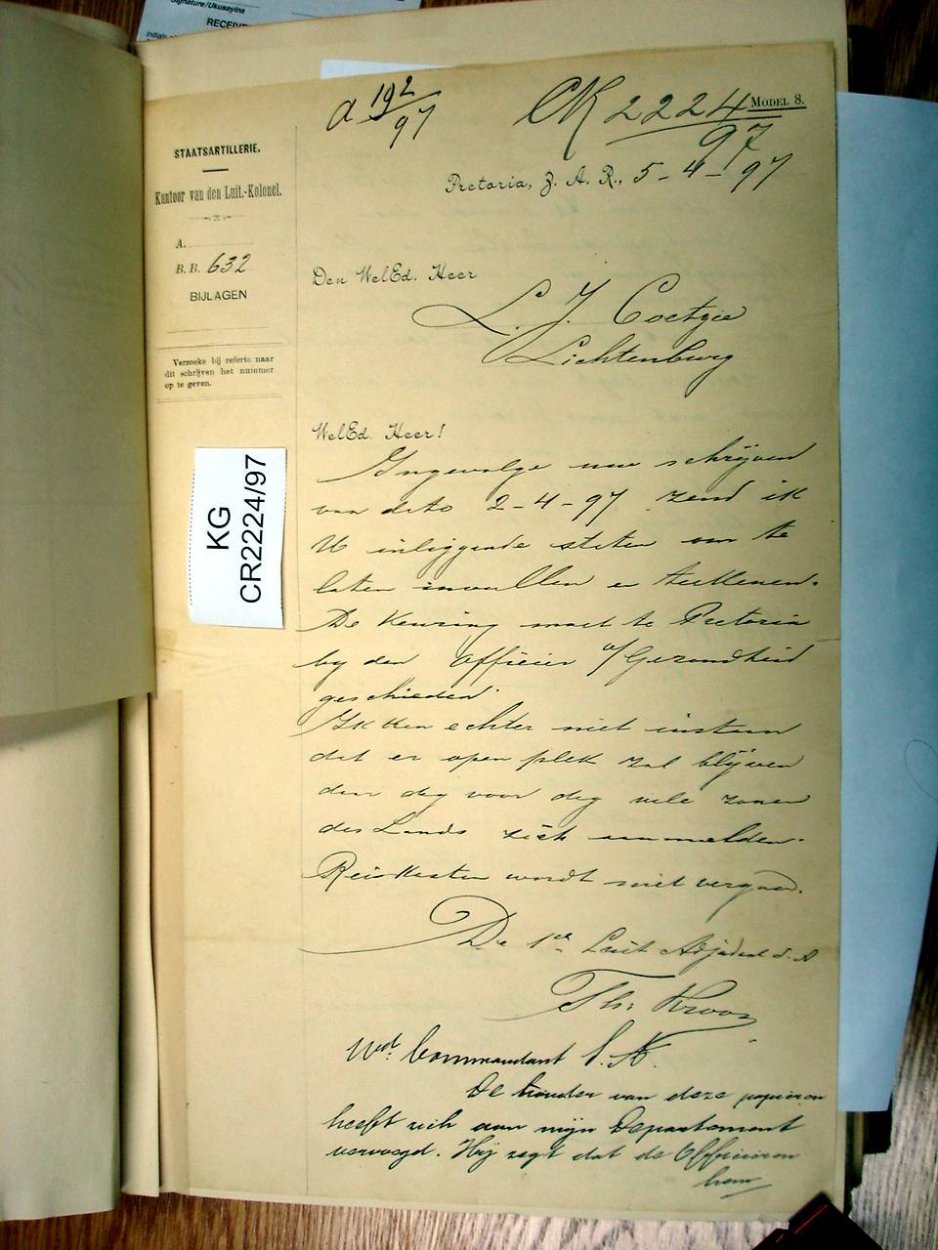 Signature/Ukusayina
a 192/97
CR 2224/97
MODEL 8.
STAATSARTILLERIE.
Kantoor van den Luit.-Kolonel.
A.
B.B. 632
BIJLAGEN
Verzoeke bij referte naar
dit schrijven het nummer
op te geven.
KG
CR2224/97
Pretoria, Z. A. R., 5-4-97
Den WelEd. Heer
L. J. Coetzee
Lichtenburg
WelEd. Heer!
Ingevolge uw schrijven
van dato 2-4-97 zend ik
U inliggende staten om te
laten invullen en teekenen.
De Keuring moet te Pretoria
by den Officier v/ Gezondheid
geschieden.
Ik kan echter niet instaan
dat er open plek zal blijven
daar dag voor dag vele zonen
des Lands zich aanmelden.
Reiskosten wordt niet vergoed.
De 1ste Luit Adjudant S. A
Th:
Wed. Commandant S. A.
De houder van deze papieren
heeft zich aan mijn Departement
vervoegd. Hij zegt dat de Officieren
hem